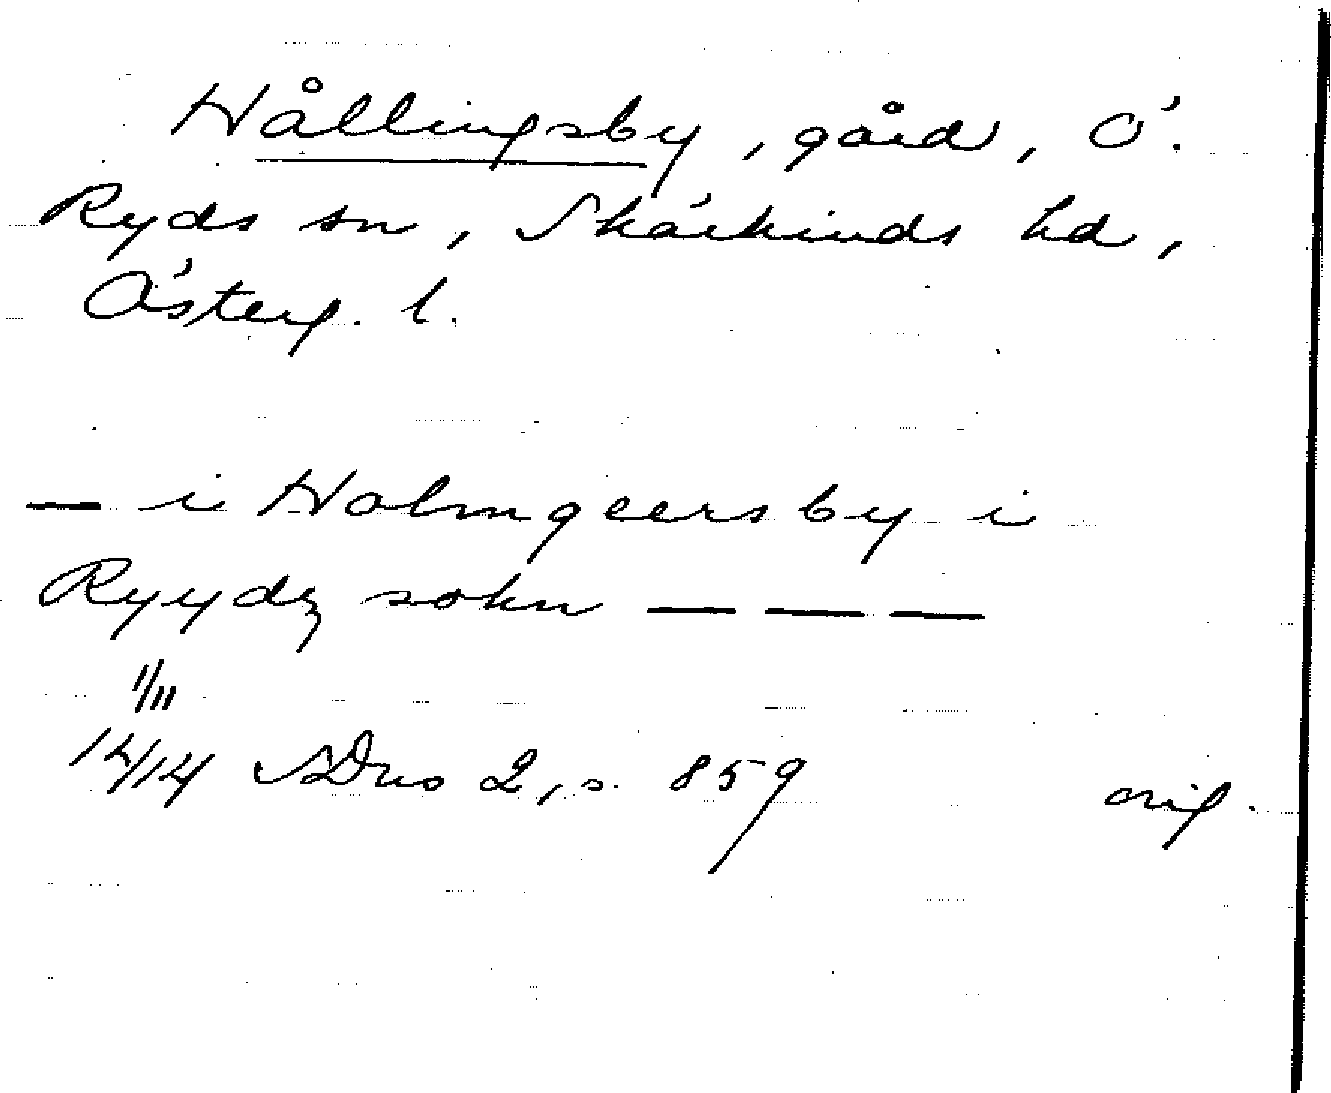 Hållingsby, gård, Ö.
Ryds sn, Skärkinds hd,
Österg. l.
— i Holmgeersby i
Ryydz sokn — — —
1/11
14/14 SDns 2, s. 859 orig.